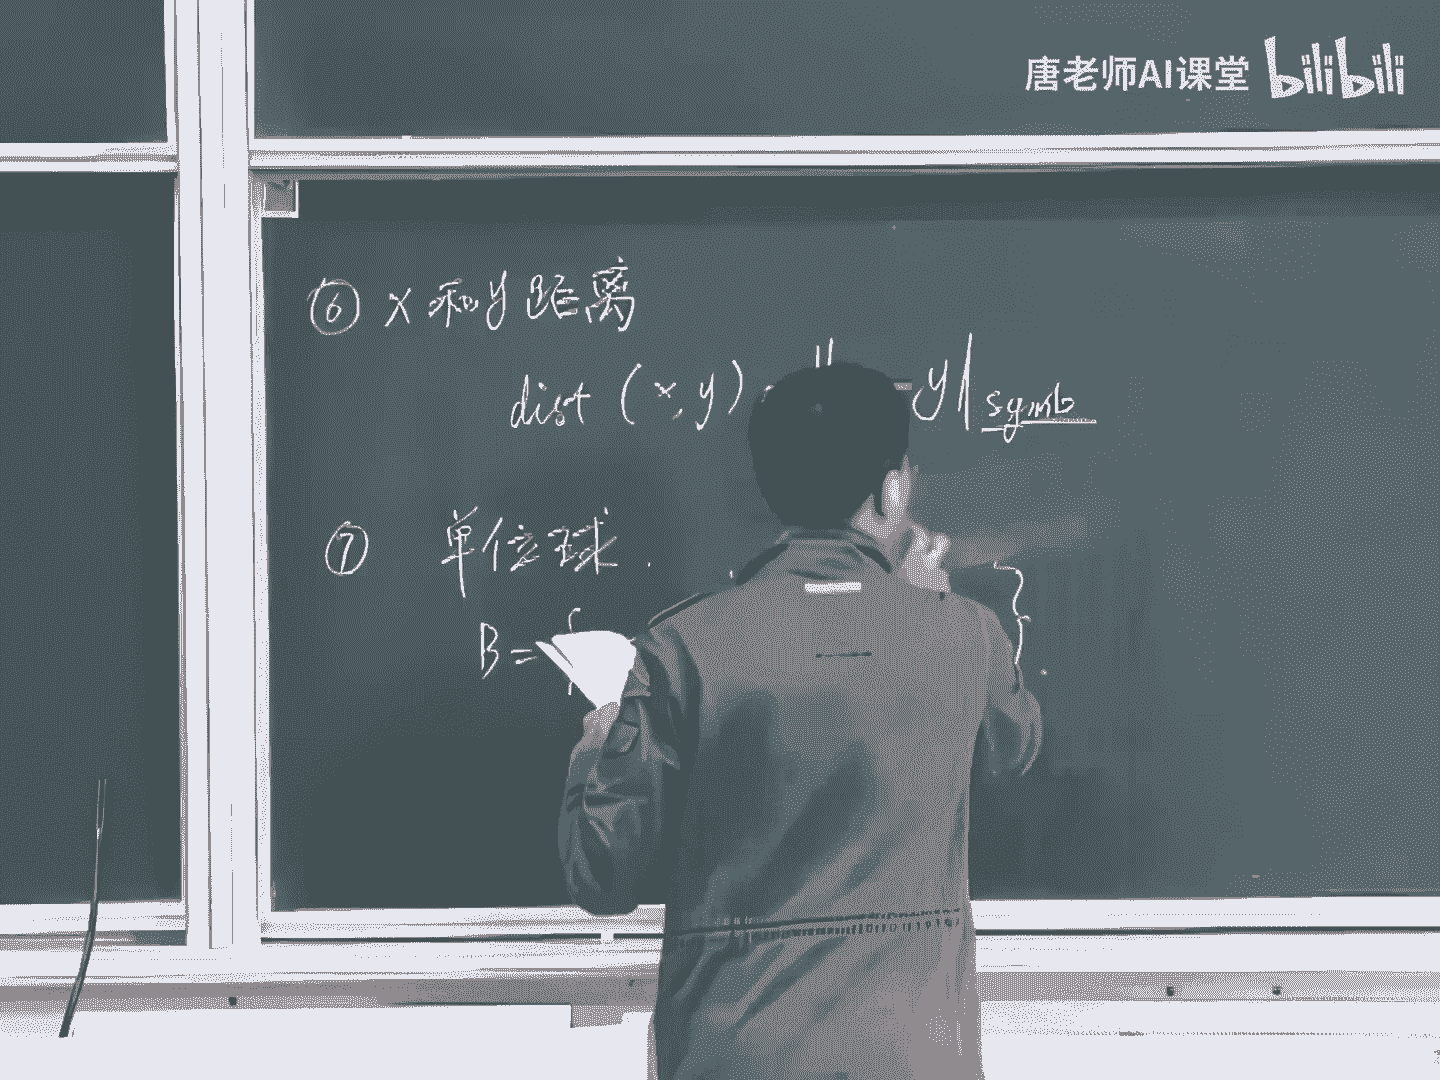 唐老师AI课堂 bilibili
⑥ x 和 y 距离
dist (x, y) = ‖ - y‖ symb
⑦ 单位球.
B = { }